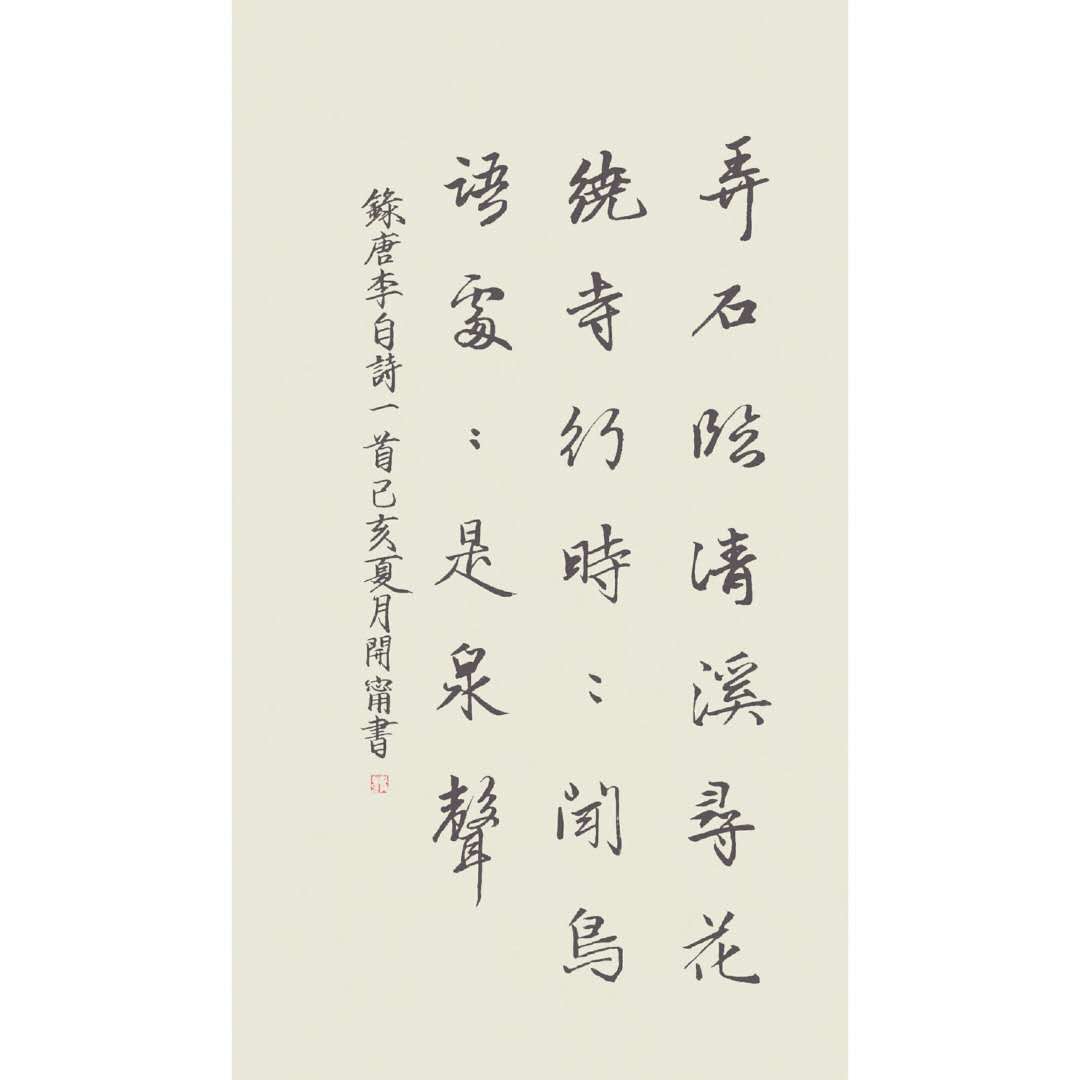 弄石臨清溪尋花
繞寺行時〻聞鳥
語處〻是泉聲
錄唐李白詩一首己亥夏月開甯書